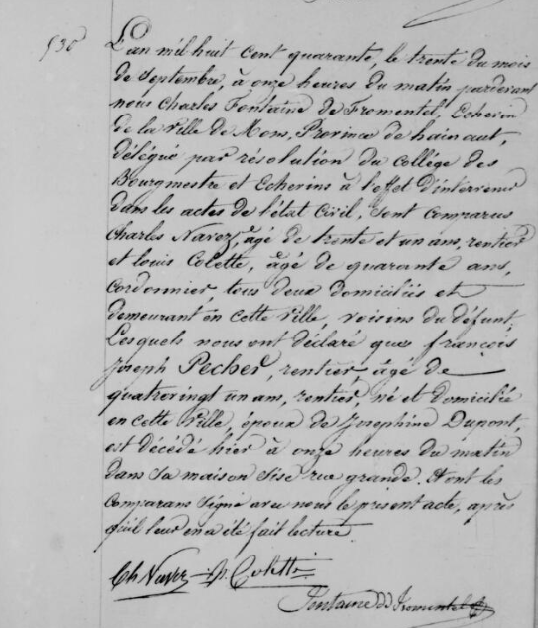 530
L'an mil huit cent quarante, le trente du mois
de Septembre, à onze heures du matin pardevant
nous Charles Fontaine de Fromentel, Echevin
de la Ville de Mons, Province de hainaut,
délégué par résolution du Collége des
Bourgmestre et Echevins à l'effet d'intervenir
dans les actes de l'état Civil, Sont Comparus
Charles Navez, âgé de trente et un ans, rentier
et Louis Colette, âgé de quarante ans,
Cordonnier, tous deux domiciliés et
demeurant en cette Ville, voisins du défunt,
Lesquels nous ont déclaré que françois
Joseph Pecher, rentier, âgé de
quatrevingt un ans, rentier, né et domicilié
en cette Ville, époux de Josephine Dupont,
est décédé hier à onze heures du matin
dans Sa maison Sise rue grande. Et ont les
Comparans Signé avec nous le present acte, après
qu'il leur en a été fait lecture.
Ch Navez Colette
Fontaine de Fromentel